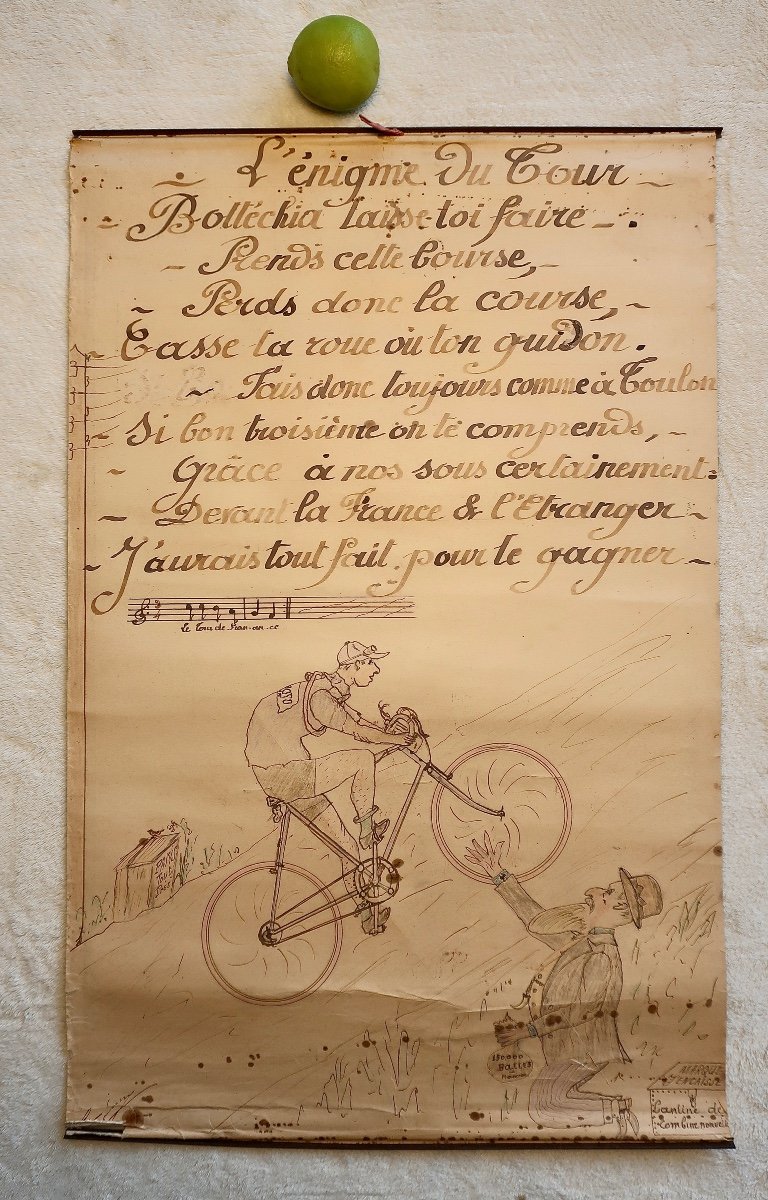 L'énigme du Tour
Bottéchia laisse-toi faire.
Prends cette bourse,
Perds donc la course,
Casse ta roue où ton guidon.
Fais donc toujours comme à Toulon
Si bon troisième on te comprends,
Grâce à nos sous certainement.
Devant la France & l'Etranger
J'aurais tout fait pour te gagner
Le Tour de Fran-an-ce
150.000
Balles
Cantine de